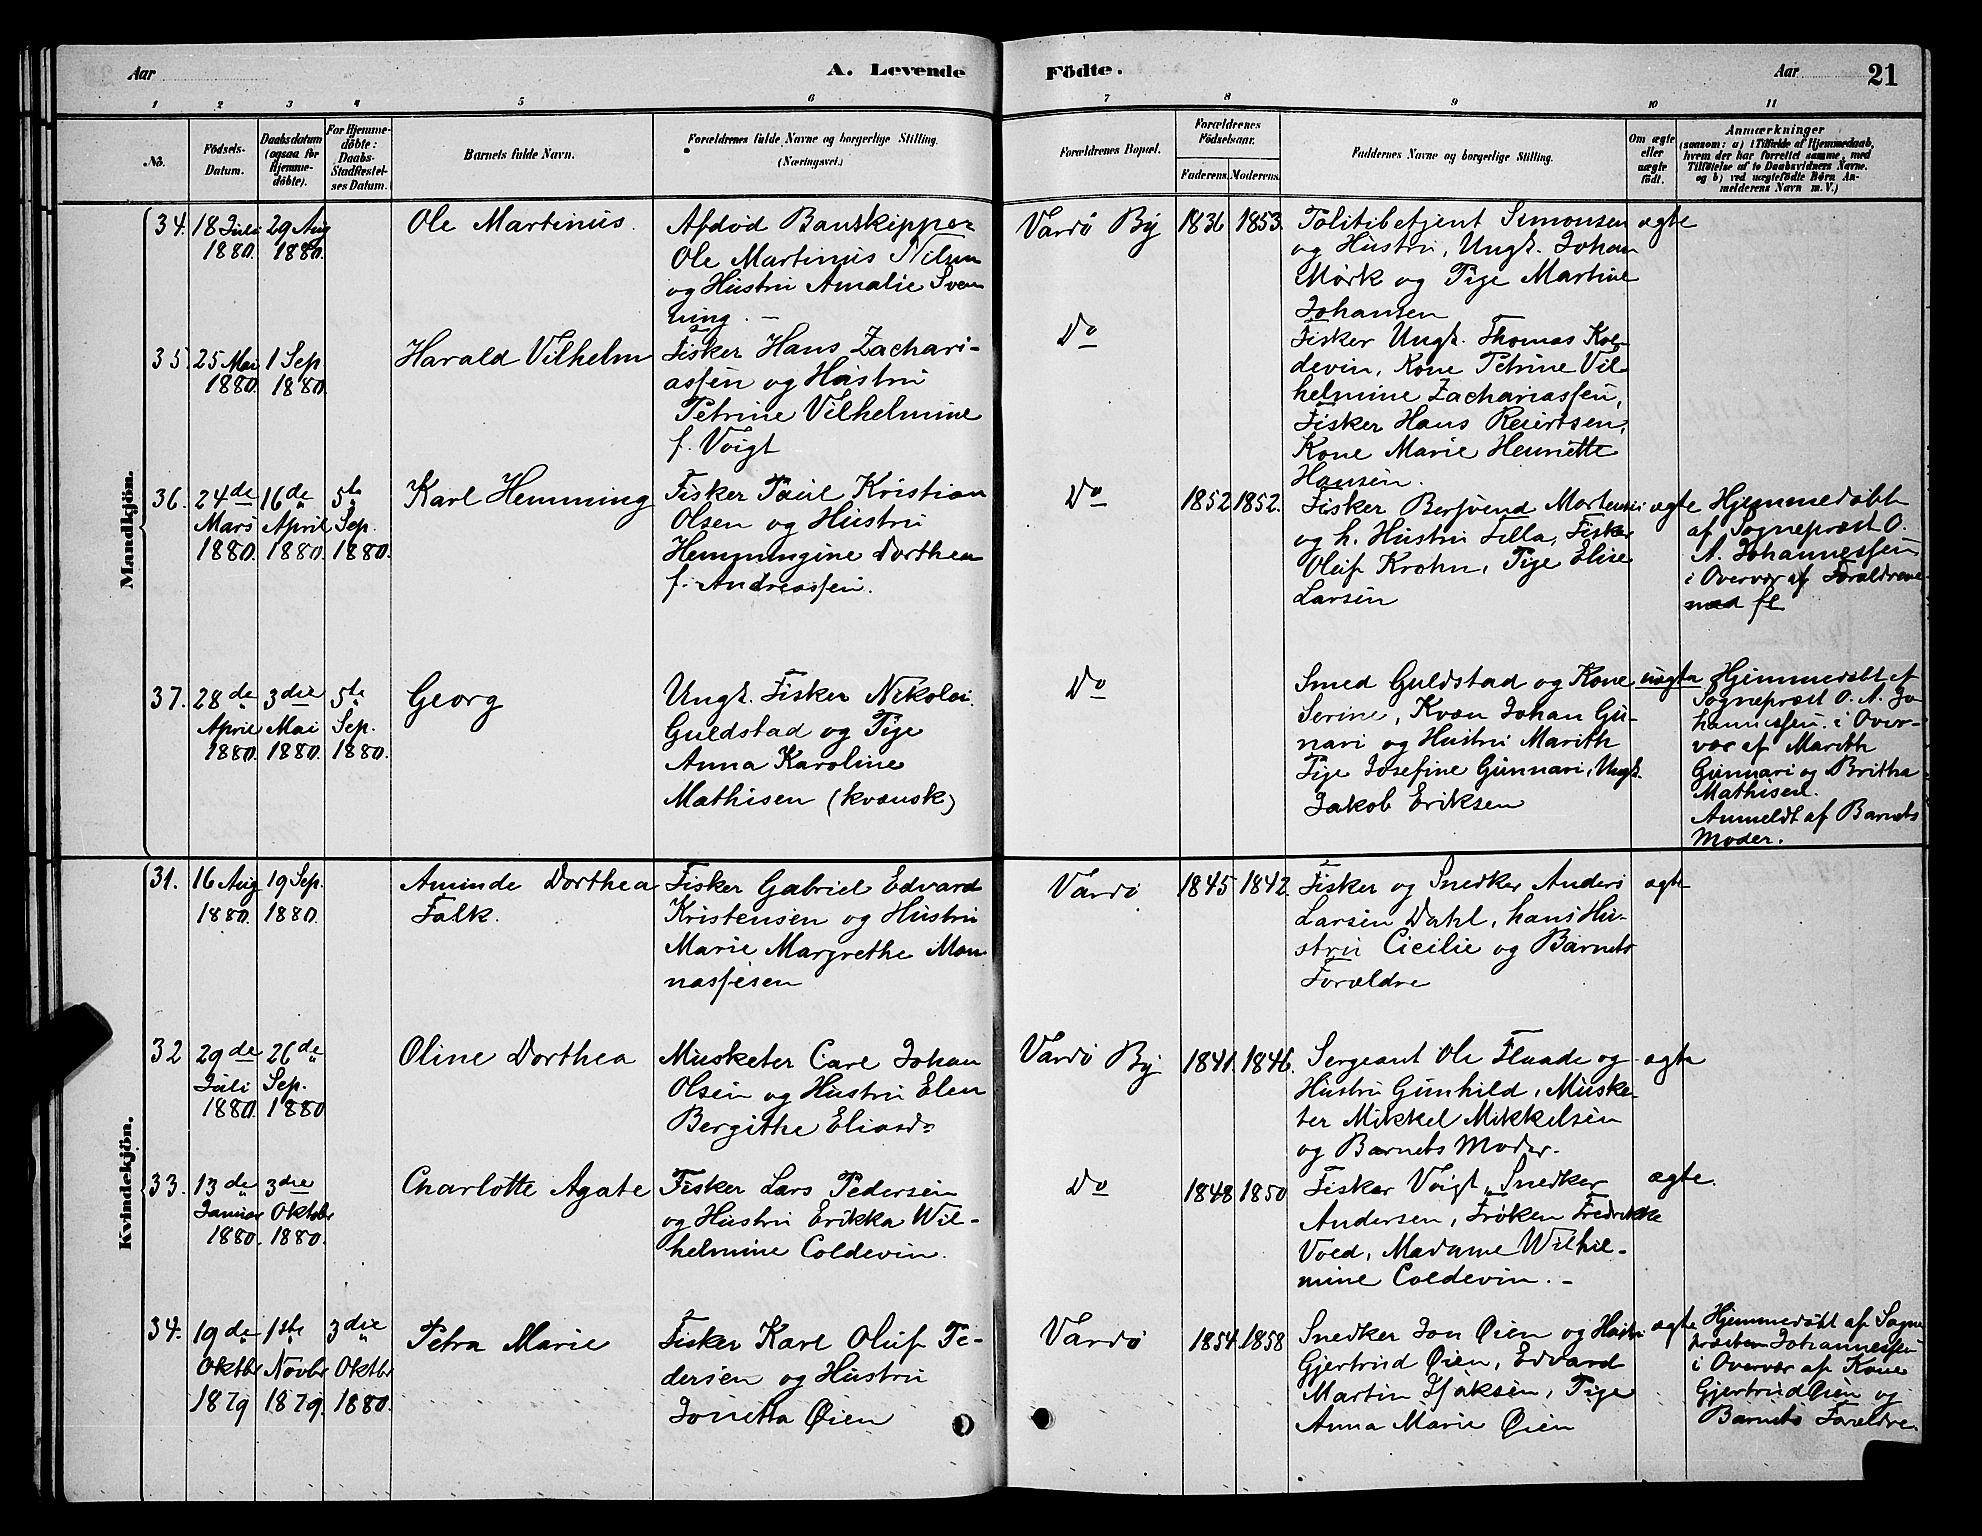 Aar
A. Levende
Födte.
Aar
21
1
2
3
4
5
6
7
8
9
10
11
No.
Födsels-
Datum.
Daabsdatum
(ogsaa for
Hjemme-
döbte).
For Hjemme-
döbte:
Daabs-
Stadfæstel-
ses Datum.
Barnets fulde Navn.
Forældrenes fulde Navne og borgerlige Stilling.
(Næringsvei.)
Forældrenes Bopæl.
Forældrenes
Fødselsaar.
Faderens.
Moderens.
Faddernes Navne og borgerlige Stilling.
Om ægte
eller
uægte
födt.
Anmærkninger
(saasom: a) i Tilfælde af Hjemmedaab,
hvem der har forrettet samme, med
Tilföielse af to Daabsvidners Navne.
og b) ved uægtefödte Börn An-
melderens Navn m. V.)
Mandkjön.
34.
18 Juli
1880.
29 Aug
1880.
Ole Martinus.
Afdød Baatskipper
Ole Martinus Nilsen
og Hustru Amalie Sven
ning. —
Vardø By
1836
1853.
Politibetjent Simonsen
og Hustru, Ungk. Johan
Mørk og Pige Martine
Johansen
ægte
35.
25 Mai
1880.
1 Sep
1880.
Harald Vilhelm
Fisker Hans Zachari-
assen og Hustru
Petrine Vilhelmine
f. Voigt
Do
Fisker Ungk. Thomas Kol-
devin, Kone Petrine Vil-
helmine Zachariassen,
Fisker Hans Reiertsen,
Kone Marie Henriette
Hansen.
36.
24de
Mars
1880.
16de
April
1880.
5te
Sep.
1880.
Karl Hemming
Fisker Paul Kristian
Olsen og Hustru
Hemmingine Dorthea
f. Andreassen.
Do
1852
1852.
Fisker Bersvend Mortensen
og h. Hustru Filla, Fisker
Oluf Krohn, Pige Elise
Larsen
ægte
Hjemmedøbt
af Sognepræst O.
A. Johannessen
i Overvær af Forældrene
med fl
37.
28de
April
1880.
3die
Mai
1880.
5te
Sep.
1880.
Georg
Ungk. Fisker Nikolai
Guldstad og Pige
Anna Karoline
Mathisen (kvænsk)
Do
Smed Guldstad og Kone
Serine, Kvæn Johan Gu-
nari og Hustru Marith
Pige Josefine Gunnari, Ungk.
Jakob Eriksen
uægte
Hjemmedøbt af
Sognepræst O. A. Jo
hannessen i Over-
vær af Marith
Gunnari og Britha
Mathisen.
Anmeldt af Barnets
Moder.
Kvindekjön.
31.
16 Aug
1880.
19 Sep.
1880.
Aminde Dorthea
Falk.
Fisker Gabriel Edvard
Kristensen og Hustru
Marie Margrethe Man
nassesen
Vardø
1845
1842.
Fisker og Snedker Anders
Larsen Dahl, hans Hu-
stru Cicilie og Barnets
Forældre
ægte
32
29de
Juli
1880.
26de
Sep.
1880
Oline Dorthea
Musketer Carl Johan
Olsen og Hustru Elen
Bergithe Eliasd.
Vardø By
1841.
1846.
Sergeant Ole Flaade og
Hustru Gunhild, Muske-
ter Mikkel Mikkelsen
og Barnets Moder.
ægte
33.
13de
Januar
1880.
3die
Oktobr
1880.
Charlotte Agate
Fisker Lars Pedersen
og Hustru Erikka Wil-
helmine Coldevin.
Do
1848
1850
Fisker Voigt, Snedker
Andersen, Frøken Fredrikke
Voed, Madame Wilhel-
mine Coldevin. —
ægte.
34.
19de
Oktbr
1879
1ste
Novbr
1879.
3die
Oktbr
1880.
Petra Marie
Fisker Karl Oluf Pe-
dersen og Hustru
Jonetta Øien
Vardø
1854.
1858
Snedker Jon Øien og Hustru
Gjertrud Øien, Edvard
Martin Isaksen, Pige
Anna Marie Øien
ægte
Hjemmedøbt af Sogne
præsten Johannessen
i Overvær af Kone
Gjertrud Øien og
Barnets Forældre.